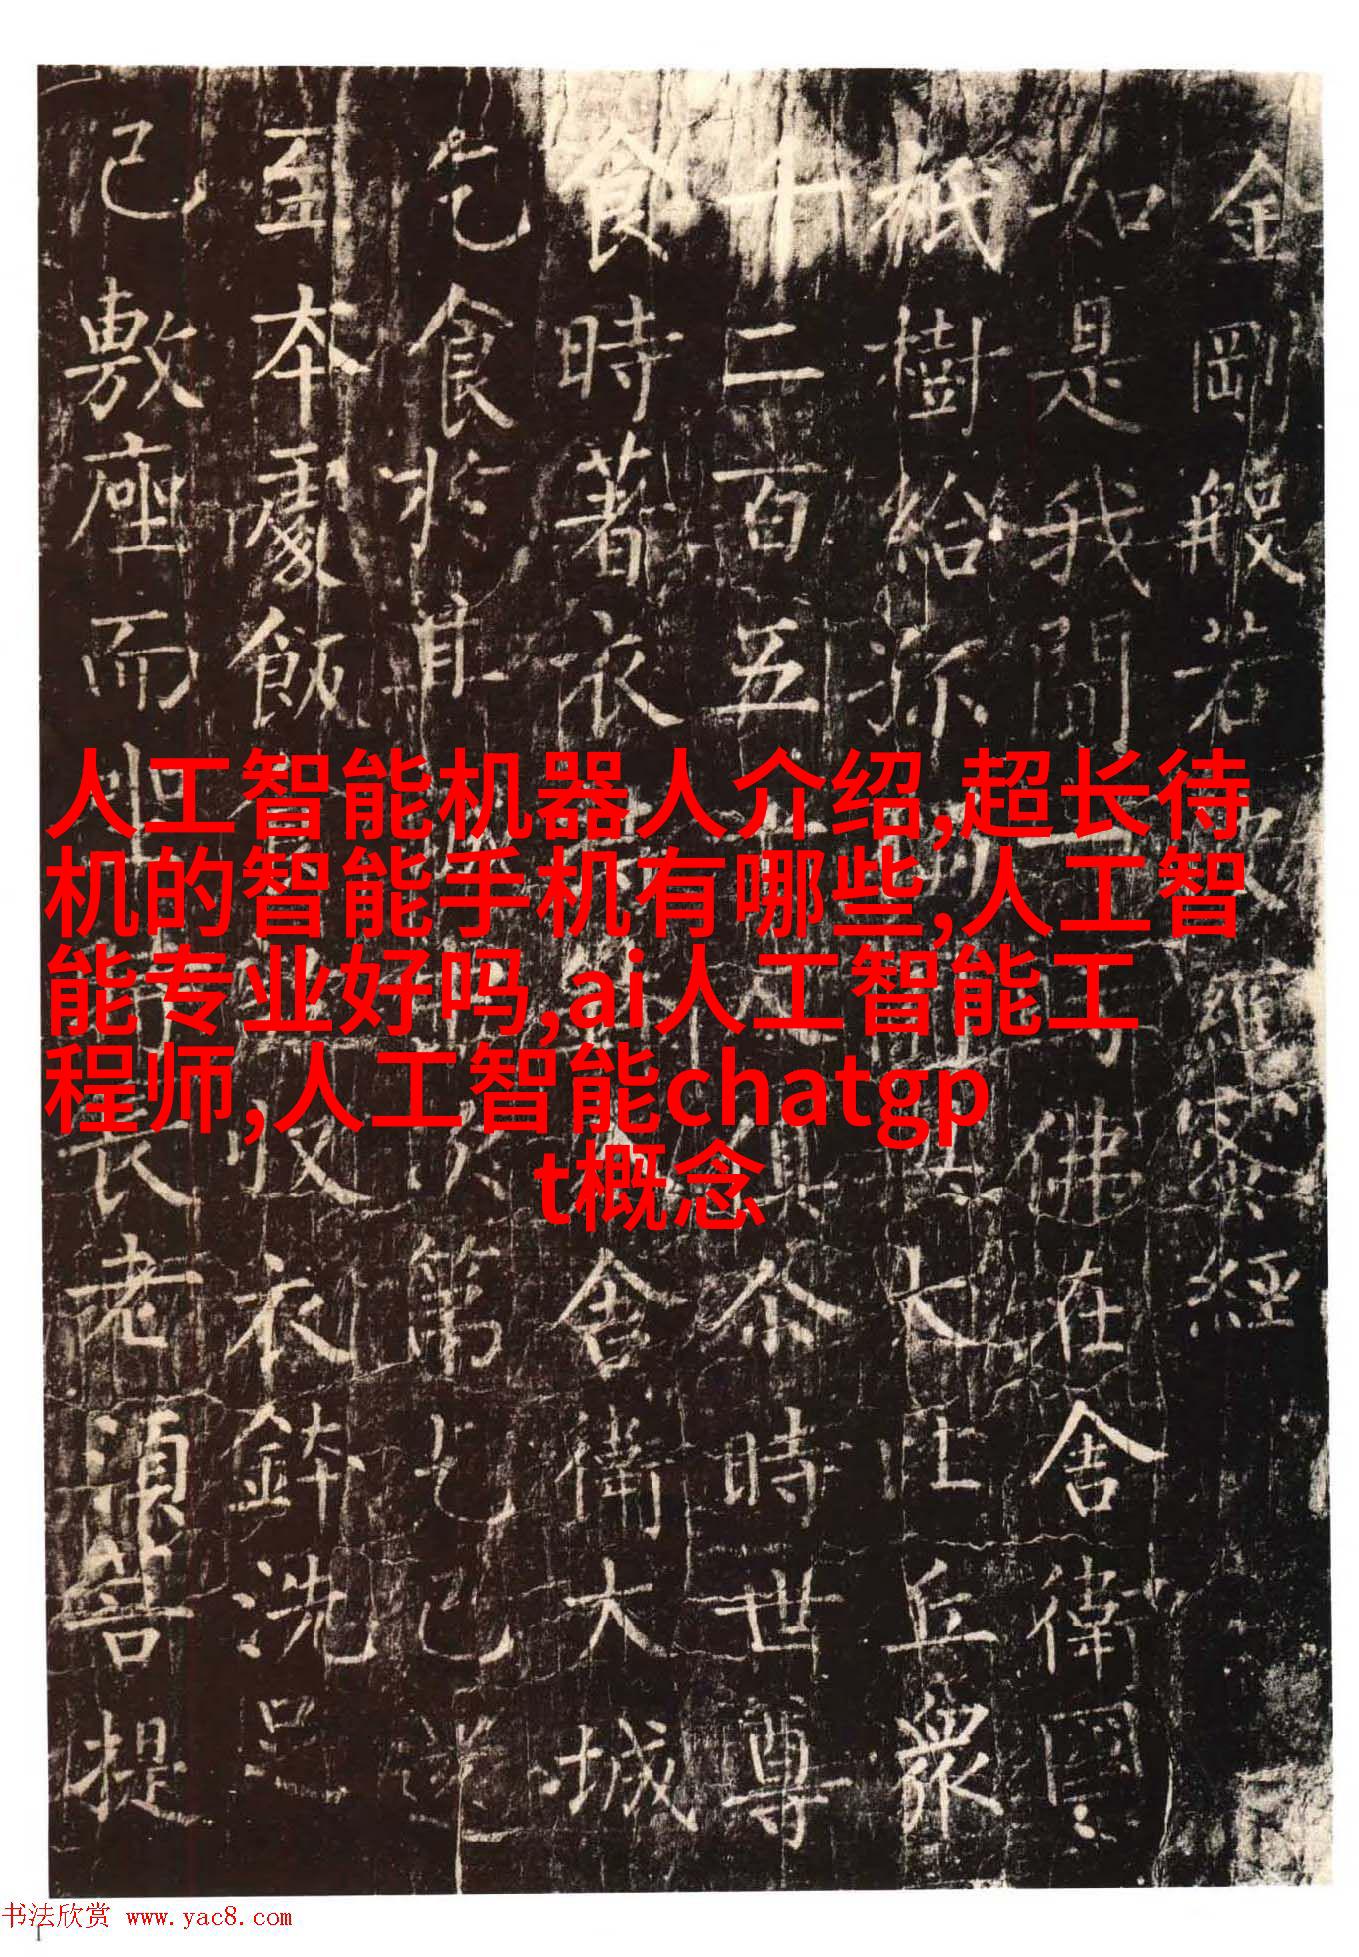 金剛般若波羅蜜經
如是我聞一時佛在舍衛國
祇樹給孤獨園與大比丘衆
千二百五十人俱尒時世尊
食時著衣持鉢入舍衛大城
乞食於其城中次第乞已還
至本處飯食訖收衣鉢洗足
已敷座而坐時長老須菩提
人工智能机器人介绍,超长待
机的智能手机有哪些,人工智
能专业好吗,ai人工智能工
程师,人工智能chatgp
t概念
书法欣赏 www.yac8.com